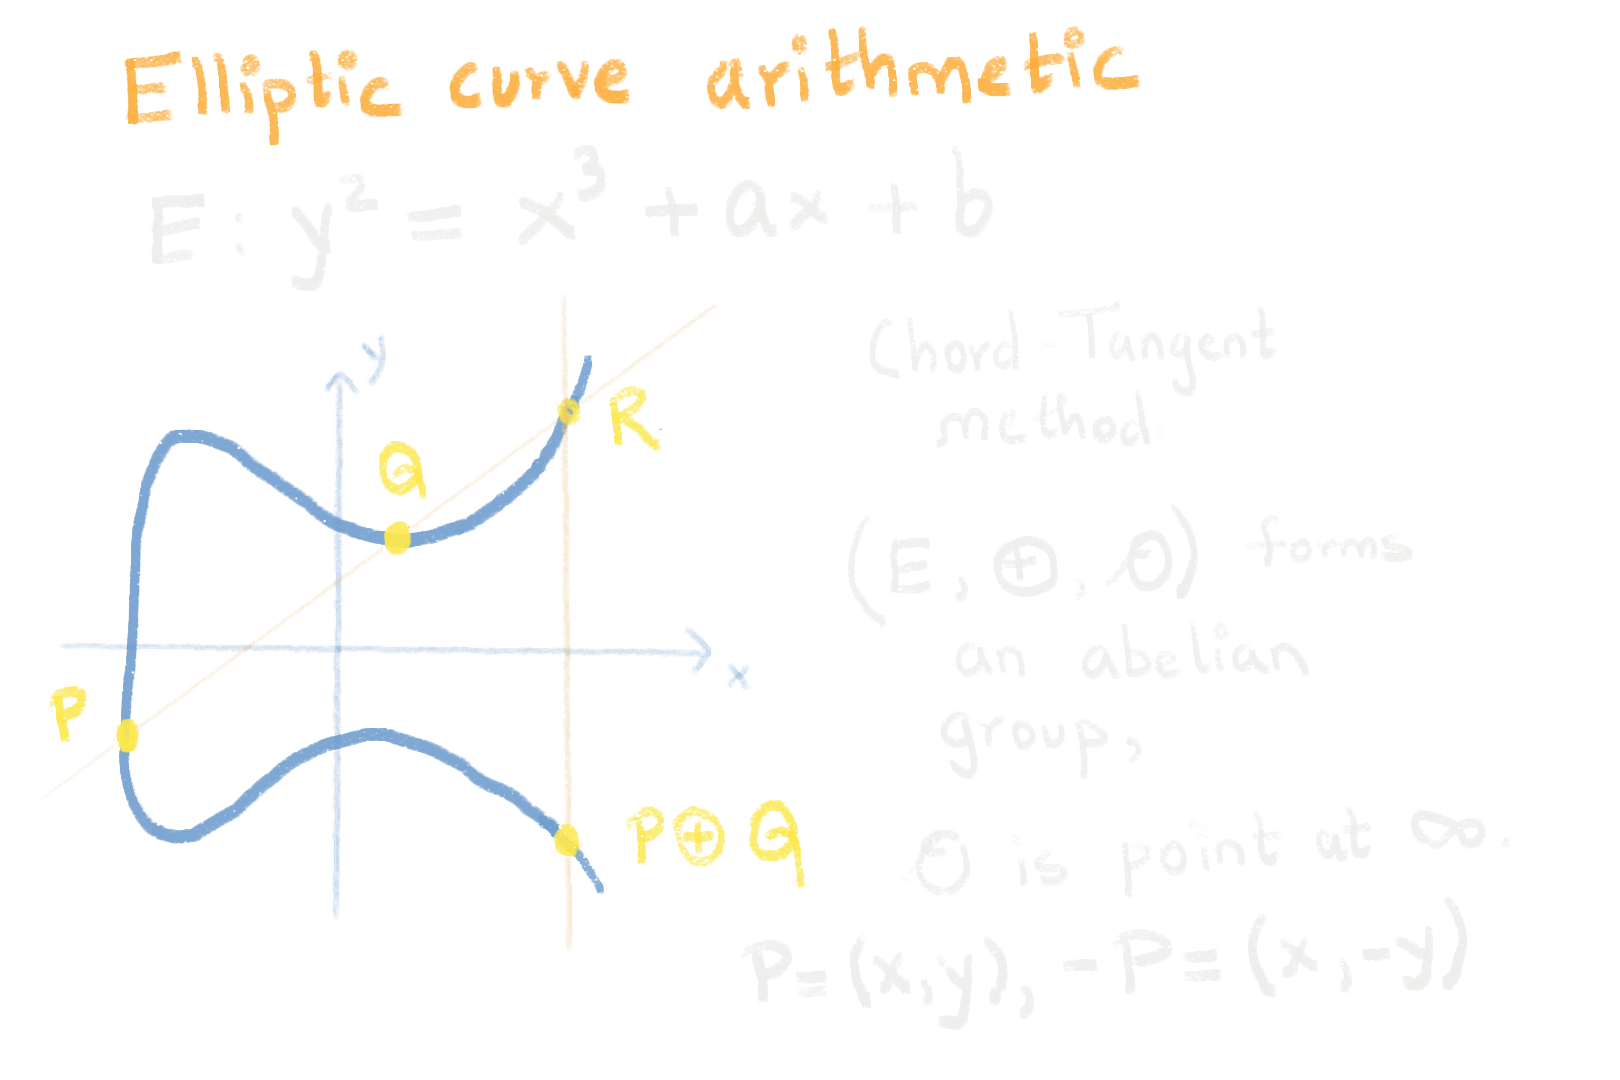 Elliptic curve arithmetic
E: y² = x³ + ax + b
Chord-Tangent
method
y
R
Q
(E, ⊕, O) forms
an abelian
group,
x
P
P⊕Q
O is point at ∞.
P=(x,y), -P=(x,-y)